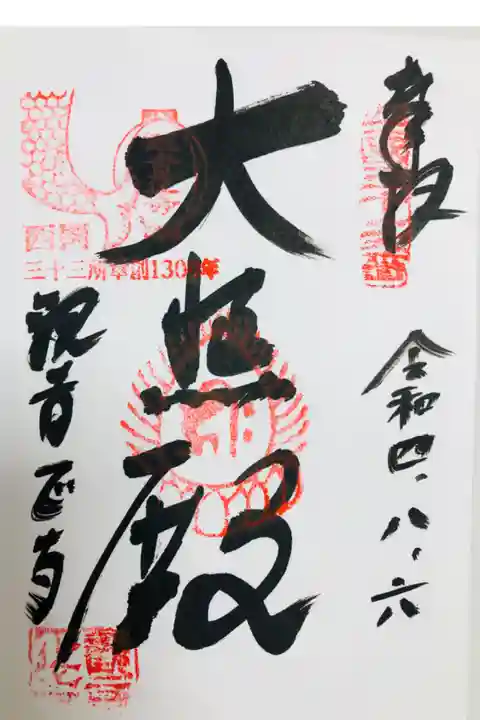 奉拝
令和四、八、六
大悲殿
西國
三十三所草創1300年
観音正寺